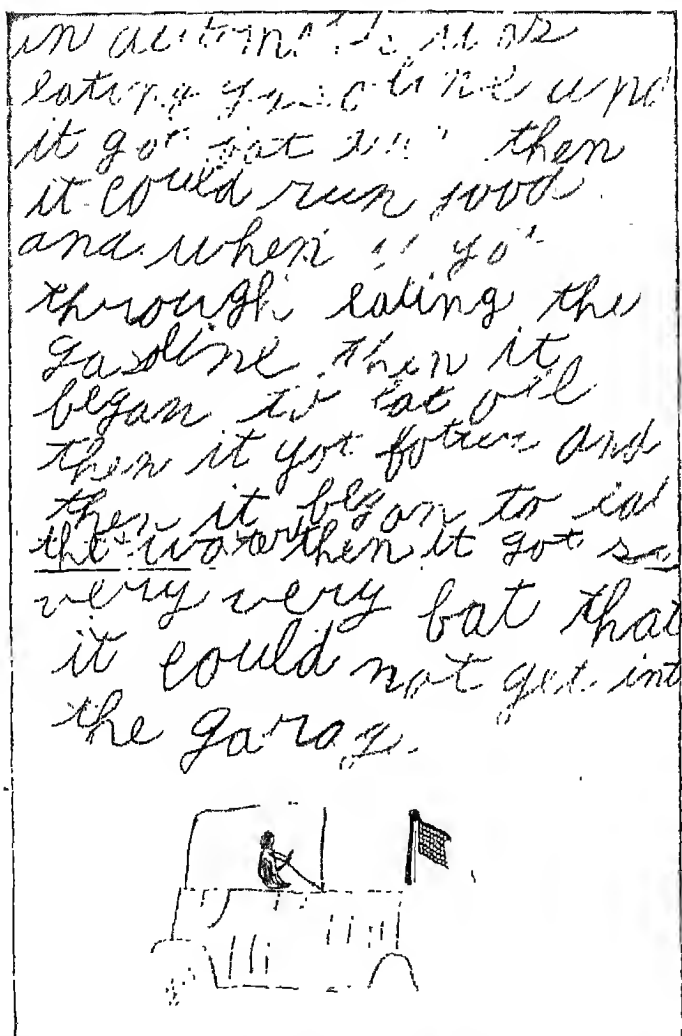 eating gasoline and
it got fat and then
it could run good
and when it got
through eating the
gasoline then it
began to eat oil
then it got and
then it began to eat
the water then it got so
very very fat that
it could not get int
the garag.